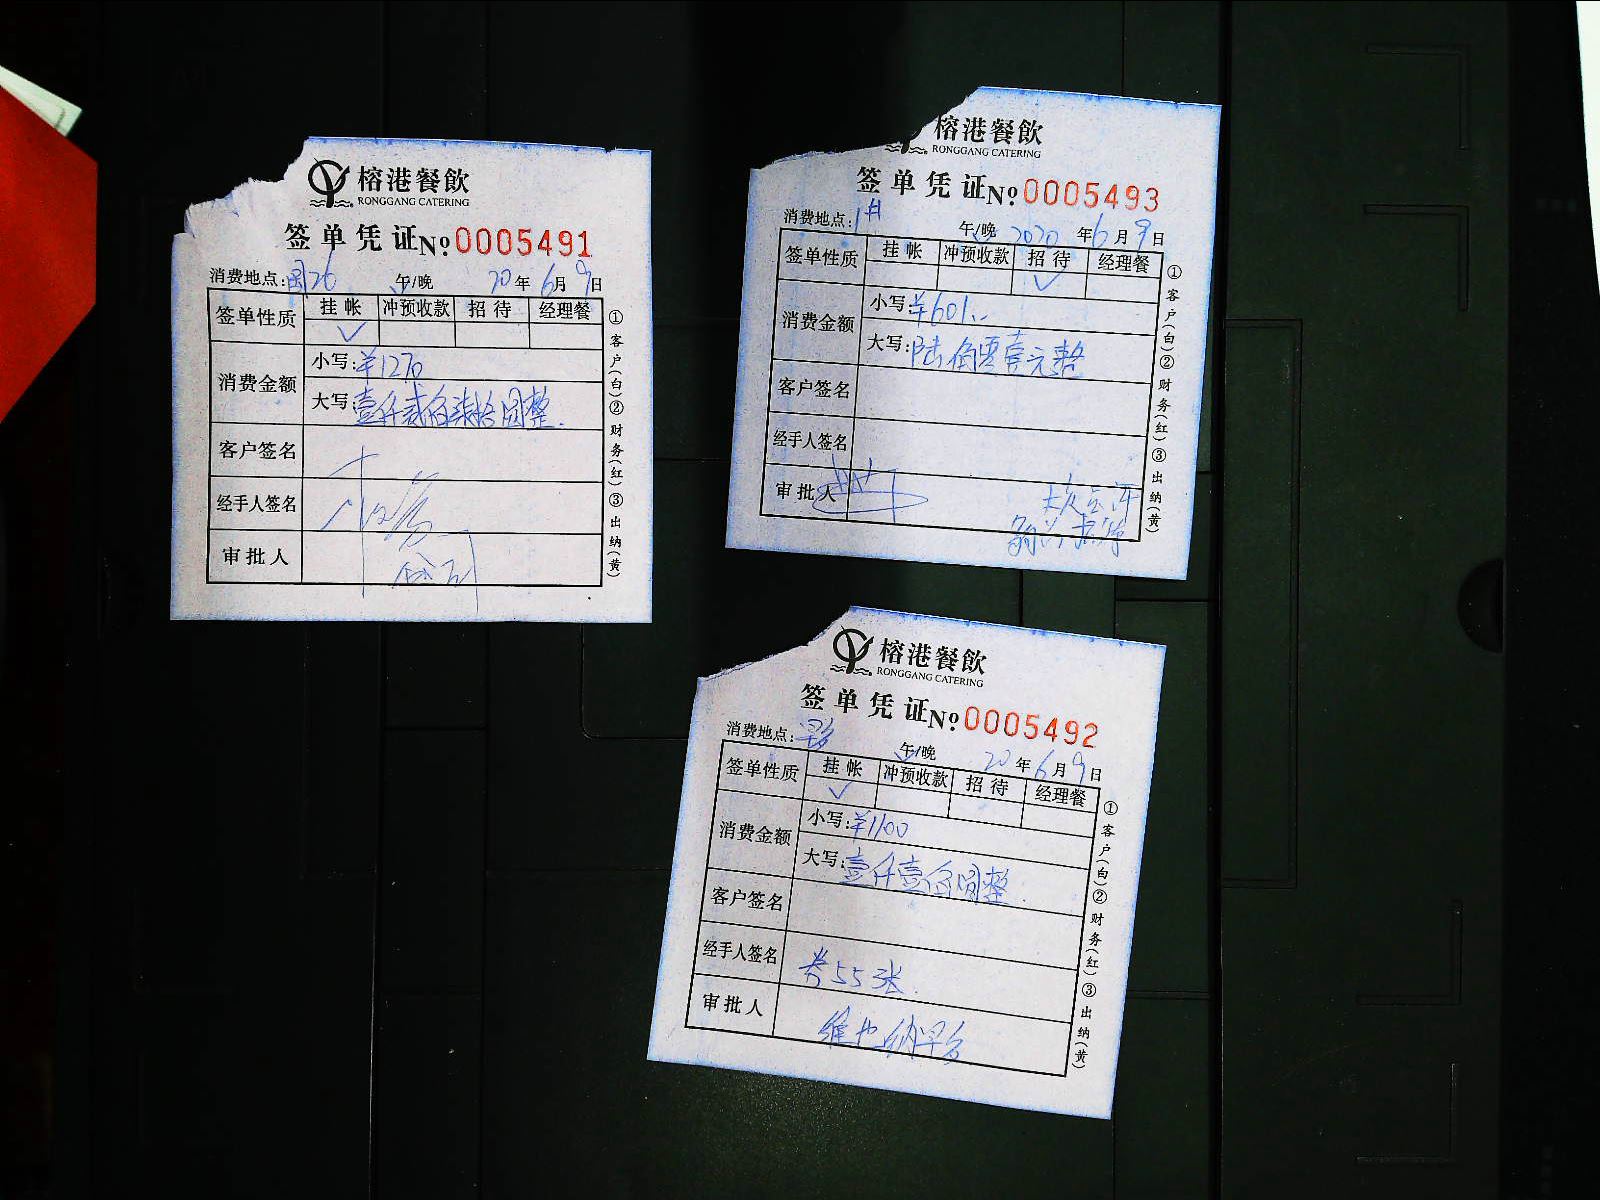 榕港餐飲
RONGGANG CATERING
签单凭证 No 0005491
消费地点: 午/晚 20年6月9日
签单性质 挂帐 冲预收款 招待 经理餐
✓
消费金额 小写:¥1270
大写:壹仟贰佰柒拾圆整.
客户签名
经手人签名
审批人
①客户(白)②财务(红)③出纳(黄)
榕港餐飲
RONGGANG CATERING
签单凭证 No 0005493
消费地点: 午/晚 2020年6月9日
签单性质 挂帐 冲预收款 招待 经理餐
✓
消费金额 小写:¥601..
大写:陆佰零壹元整
客户签名
经手人签名
审批人
①客户(白)②财务(红)③出纳(黄)
榕港餐飲
RONGGANG CATERING
签单凭证 No 0005492
消费地点: 午/晚 20年6月9日
签单性质 挂帐 冲预收款 招待 经理餐
✓
消费金额 小写:¥1100
大写:壹仟壹佰圆整.
客户签名
经手人签名 券55张.
审批人 维也纳早
①客户(白)②财务(红)③出纳(黄)